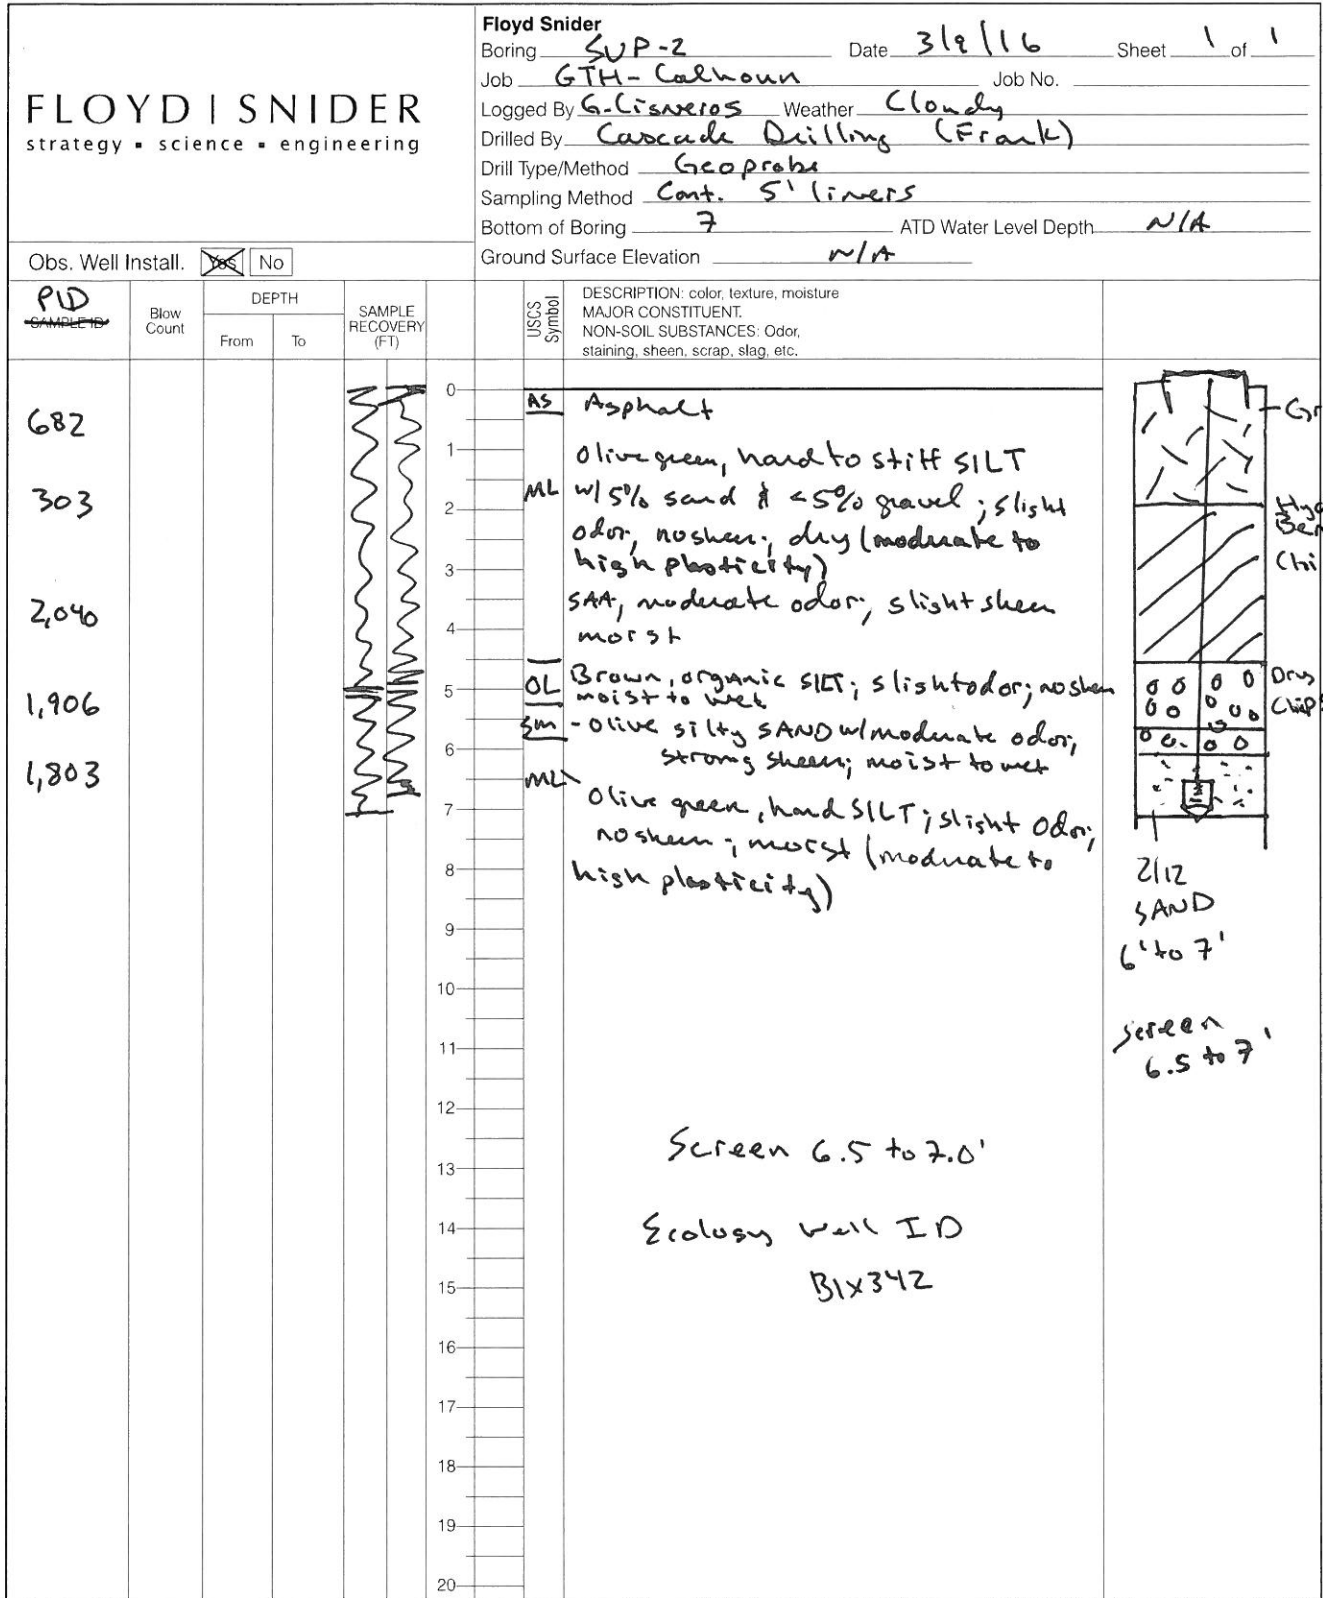 FLOYD | SNIDER
strategy ▪ science ▪ engineering
Floyd Snider
Boring SVP-2 Date 3/9/16 Sheet 1 of 1
Job GTH-Calhoun Job No.
Logged By G. Cisneros Weather Cloudy
Drilled By Cascade Drilling (Frank)
Drill Type/Method Geoprobe
Sampling Method Cont. 5' liners
Bottom of Boring 7 ATD Water Level Depth N/A
Ground Surface Elevation N/A
Obs. Well Install. Yes No
PID
SAMPLE ID
Blow
Count
DEPTH
From To
SAMPLE
RECOVERY
(FT)
USCS
Symbol
DESCRIPTION: color, texture, moisture
MAJOR CONSTITUENT.
NON-SOIL SUBSTANCES: Odor,
staining, sheen, scrap, slag, etc.
682
303
2,040
1,906
1,803
0
1
2
3
4
5
6
7
8
9
10
11
12
13
14
15
16
17
18
19
20
AS Asphalt
Olive green, hard to stiff SILT
ML w/ 5% sand & <5% gravel; slight
odor, no sheen; dry (moderate to
high plasticity)
SAA, moderate odor; slight sheen
moist
OL Brown, organic SILT; slight odor; no sheen
moist to wet
SM - Olive silty SAND w/ moderate odor,
strong sheen; moist to wet
ML Olive green, hard SILT; slight odor;
no sheen; moist (moderate to
high plasticity)
Screen 6.5 to 7.0'
Ecology Well ID
BIX342
Gr
Hyd
Ben
Chi
Dry
Chip
2/12
SAND
6' to 7'
Screen
6.5 to 7'